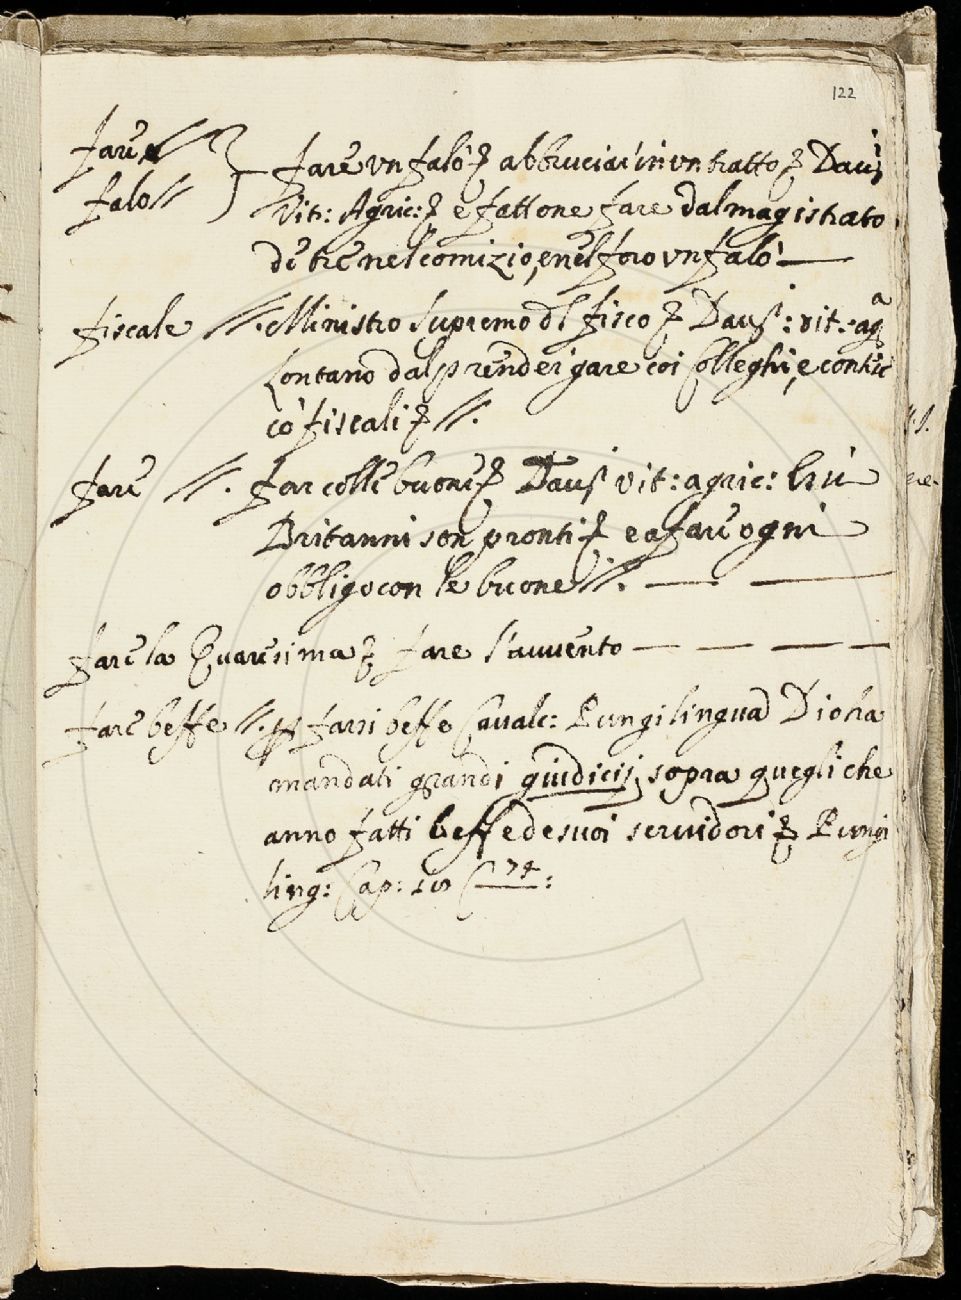 122
fare //
falo //
fare vn falò abbruciar in vn tratto Dau:i
Vit: Agric: e fattone fare dal magistrato
de tre nel comizio, e nel foro vn falò —
fiscale //. Ministro supremo dl fisco Dau: vit: ag
Lontano dal prender gare coi Colleghi, e contic
cò fiscali //.
fare //. far colle buone Dau: vit: agric:
Britanni son pronti e a fare ogni
obbligo con le buone //. — —
fare la Quaresima fare l'auuento — — — —
fare beffe //. farsi beffe Caualc: Pungilingua Dio ha
mandati grandi giudicij sopra quegli che
anno fatti beffe de suoi seruidori Pungi
ling: Cap: C 74: